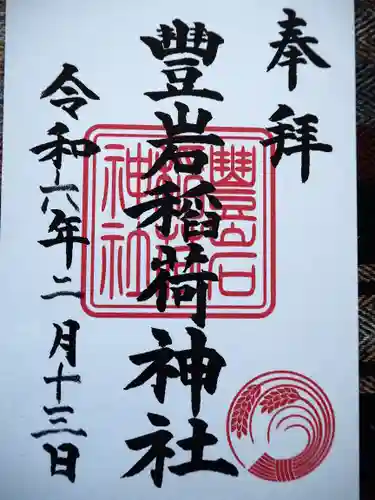 奉拝
豐岩稲荷神社
令和六年二月十三日
豐岩
稲荷
神社